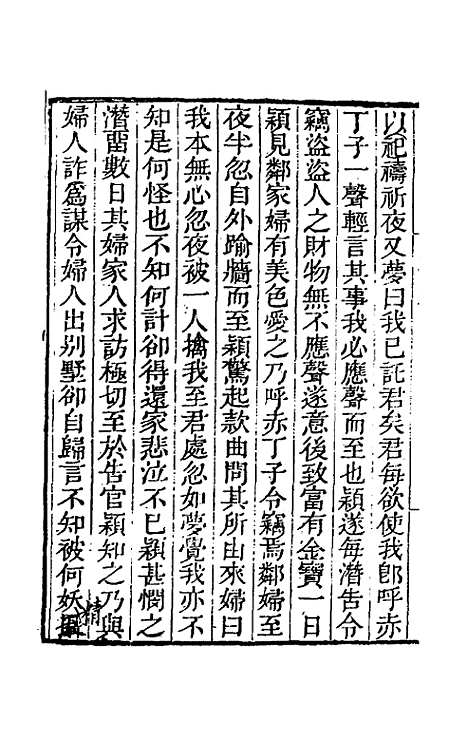 以祀禱祈夜又夢曰我已託君矣君每欲使我卽呼赤
丁子一聲輕言其事我必應聲而至也穎遂每潛告令
竊盜盜人之財物無不應聲遂意後致富有金寶一日
穎見鄰家婦有美色愛之乃呼赤丁子令竊焉鄰婦至
夜半忽自外踰牆而至穎驚起款曲問其所由來婦曰
我本無心忽夜被一人擒我至君處忽如夢覺我亦不
知是何怪也不知何計卻得還家悲泣不已穎甚憫之
潛畱數日其婦家人求訪極切至於告官穎知之乃與
婦人詐爲謀令婦人出别墅卻自歸言不知被何妖
精